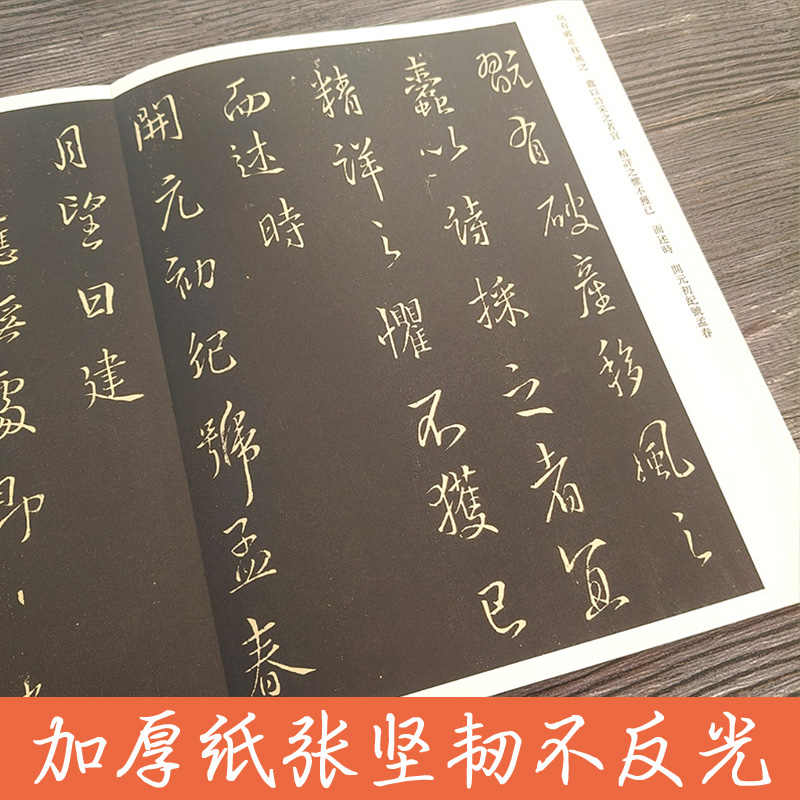 玩有破產移風之　蠹以詩采之者宜　精詳之懼不獲已　而述時　開元初紀號孟春
翫有破產移風之
蠹以詩採之者宜
精詳之懼不獲已
而述時
開元初紀號孟春
月望日建
處即
加厚纸张坚韧不反光